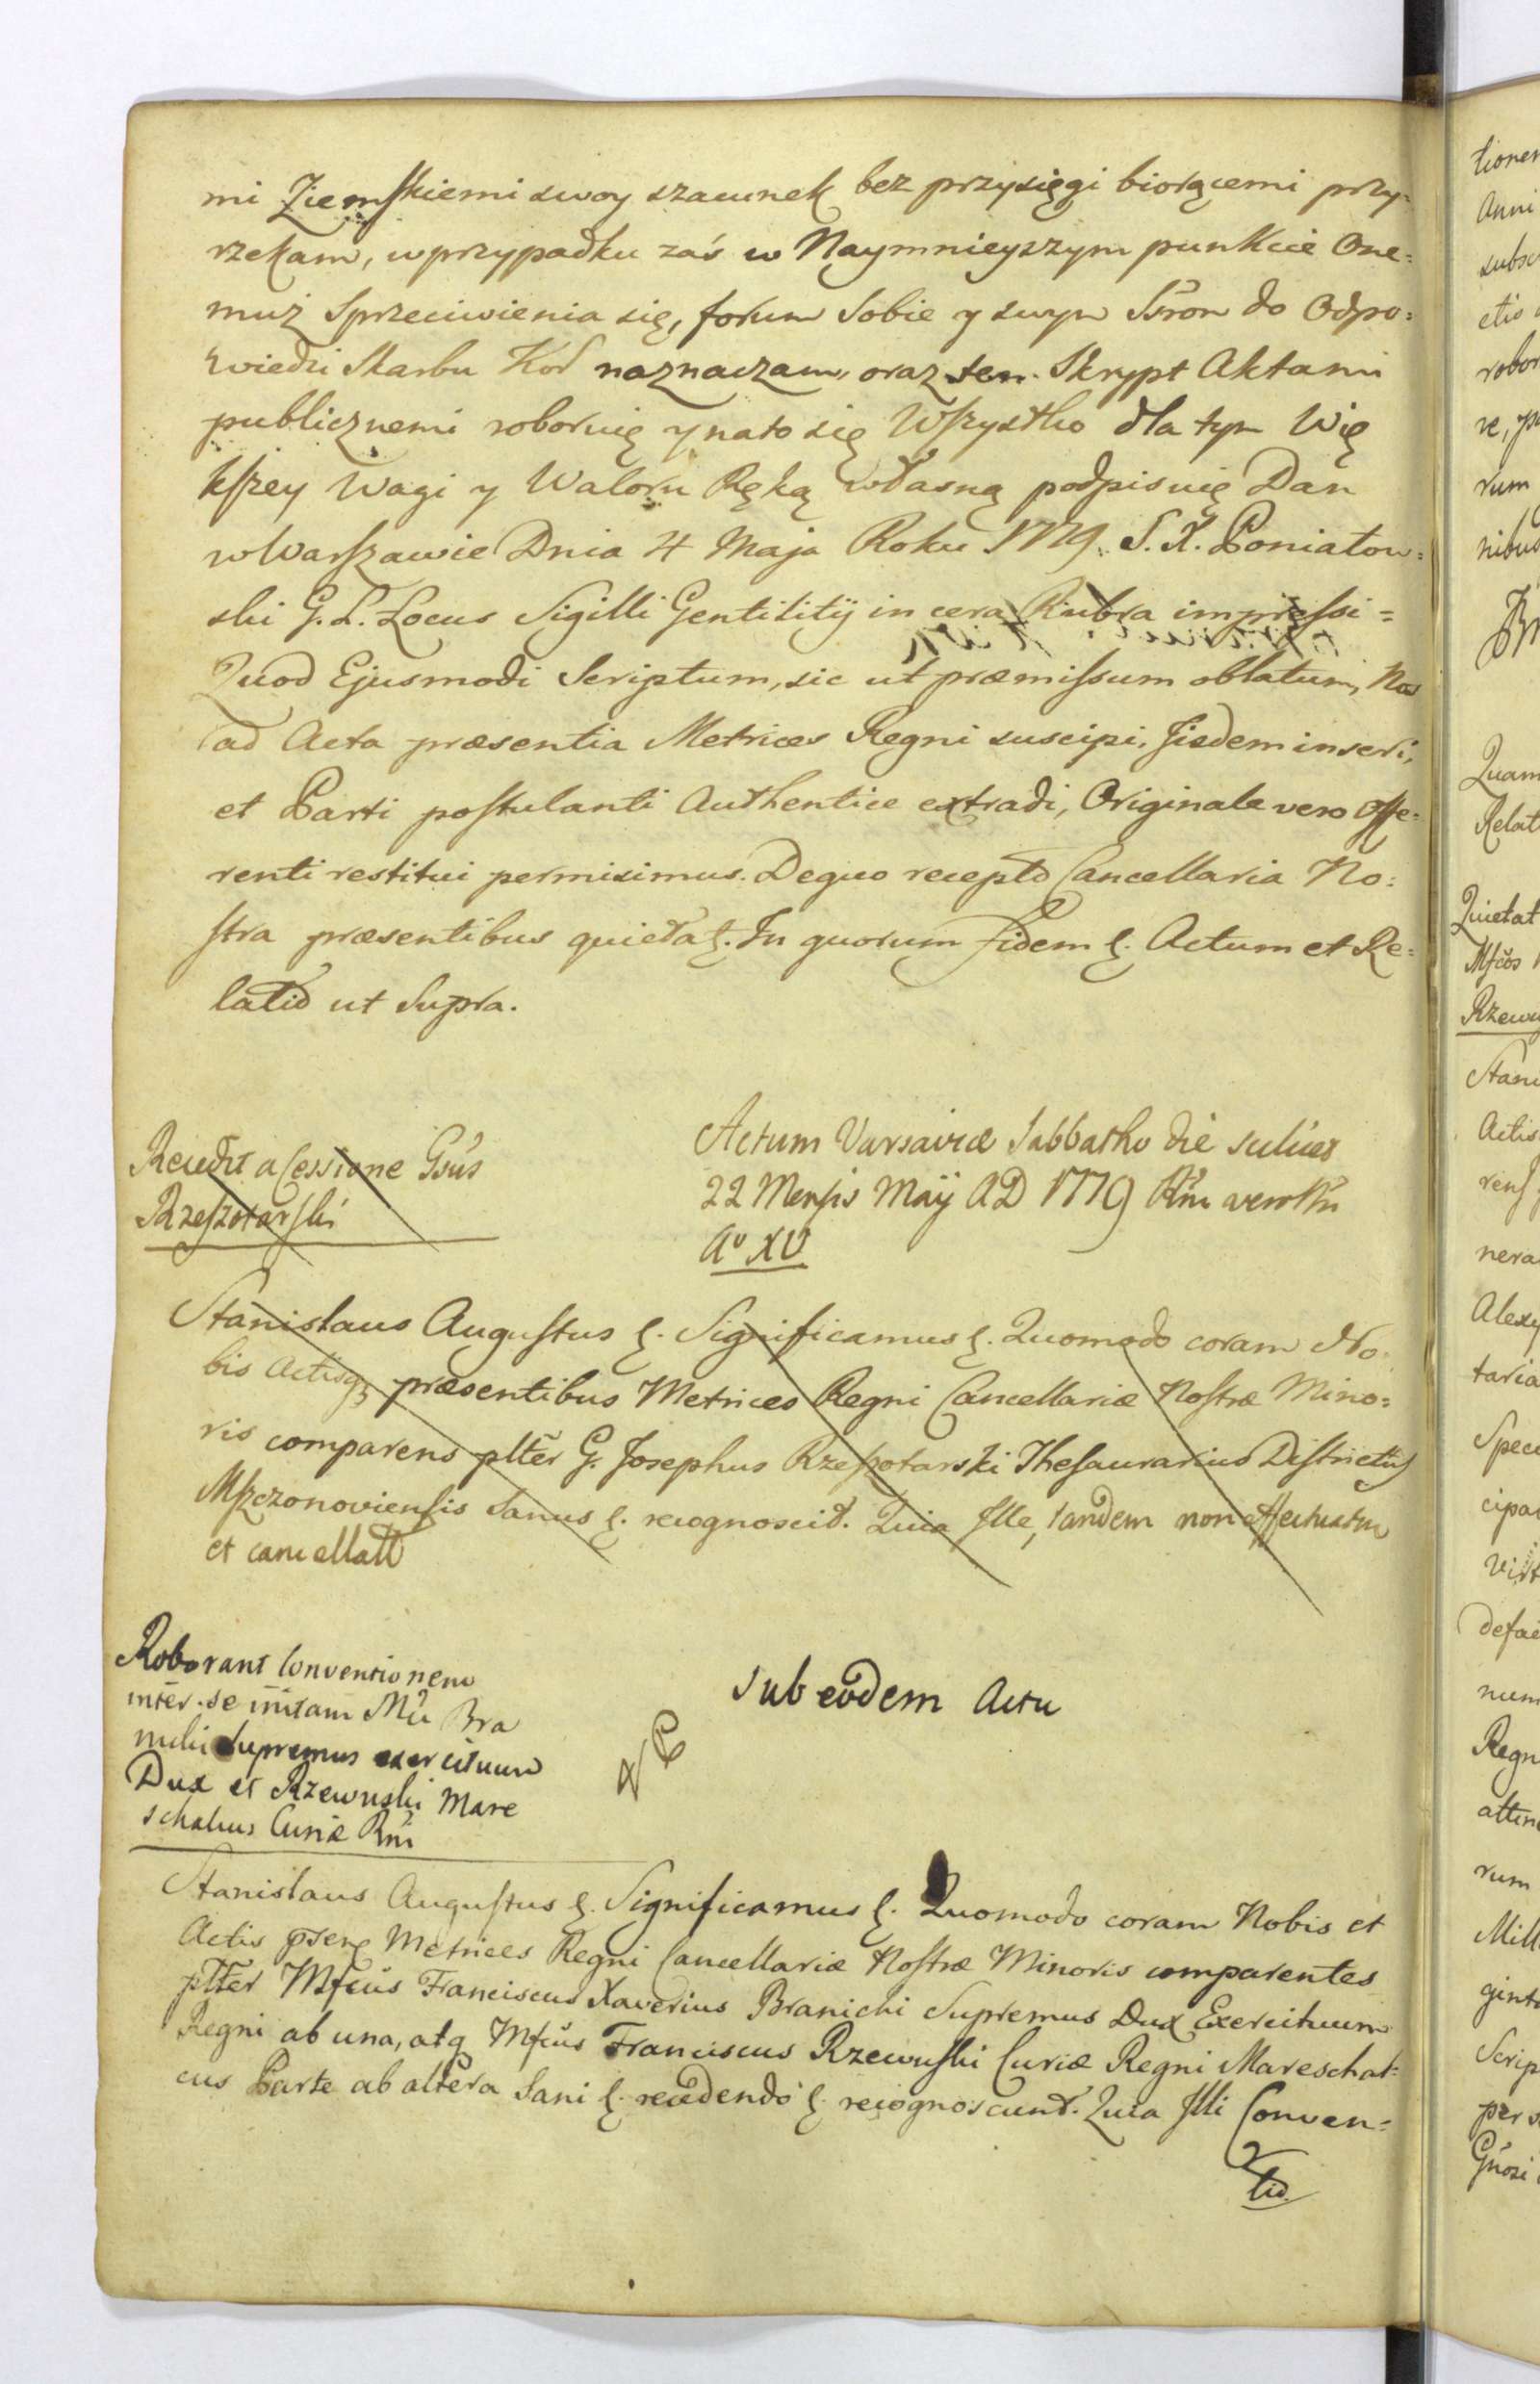 mi Ziemskiemi swoy szacunek bez przysięgi biorącemi przy=
rzekam, w przypadku zaś w Naymnieyszym punkcie One=
muż Sprzeciwienia się, forum Sobie y swym Stron do Odpo=
wiedzi Skarbu Kor naznaczam, oraz ten Skrypt Aktami
publicznemi roboruię y na to się Wszystko dla tym Wię
kszey Wagi y Waloru Ręką własną podpisuię Dan
w Warszawie Dnia 4 Maja Roku 1779. S. X. Poniatow=
ski G. L. Locus Sigilli Gentilitij in cera Rubra impressi=
Quod Ejusmodi Scriptum, sic ut præmissum oblatum, Nos
ad Acta præsentia Metrices Regni suscipi, Jisdem inseri,
et Parti postulanti Authentice extradi, Originale vero Offe=
renti restitui permisimus. De quo recepto Cancellaria No=
stra præsentibus quietat. In quorum Fidem &. Actum et Re=
latio ut Supra.
Recedit a Cessione Gsus
Rzeszotarski
Actum Varsaviæ Sabbatho die scilicet
22 Mensis Maij AD 1779 Rni vero Nri
Aº XV
Stanislaus Augustus &. Significamus &. Quomodo coram No=
bis Actisq præsentibus Metrices Regni Cancellariæ Nostræ Mino=
ris comparens plter G. Josephus Rzeszotarski Thesaurarius Districtus
Mszczonoviensis Sanus &. recognoscit. Quia Ille, tandem non effectuatum
et cancellatt
Roborant Conventionem
inter se initam Mci Bra
nicki Supremus exercituum
Dux et Rzewuski Mare
schalcus Curiæ Rni
Sub eodem Actu
Stanislaus Augustus &. Significamus &. Quomodo coram Nobis et
Actis psen Metrices Regni Cancellariæ Nostræ Minoris comparentes
plter Mfcus Franciscus Xaverius Branicki Supremus Dux Exercituum
Regni ab una, atq Mfcus Franciscus Rzewuski Curiæ Regni Mareschal=
cus Parte ab altera Sani &. recedendo &. recognoscunt. Quia Illi Conven=
tio